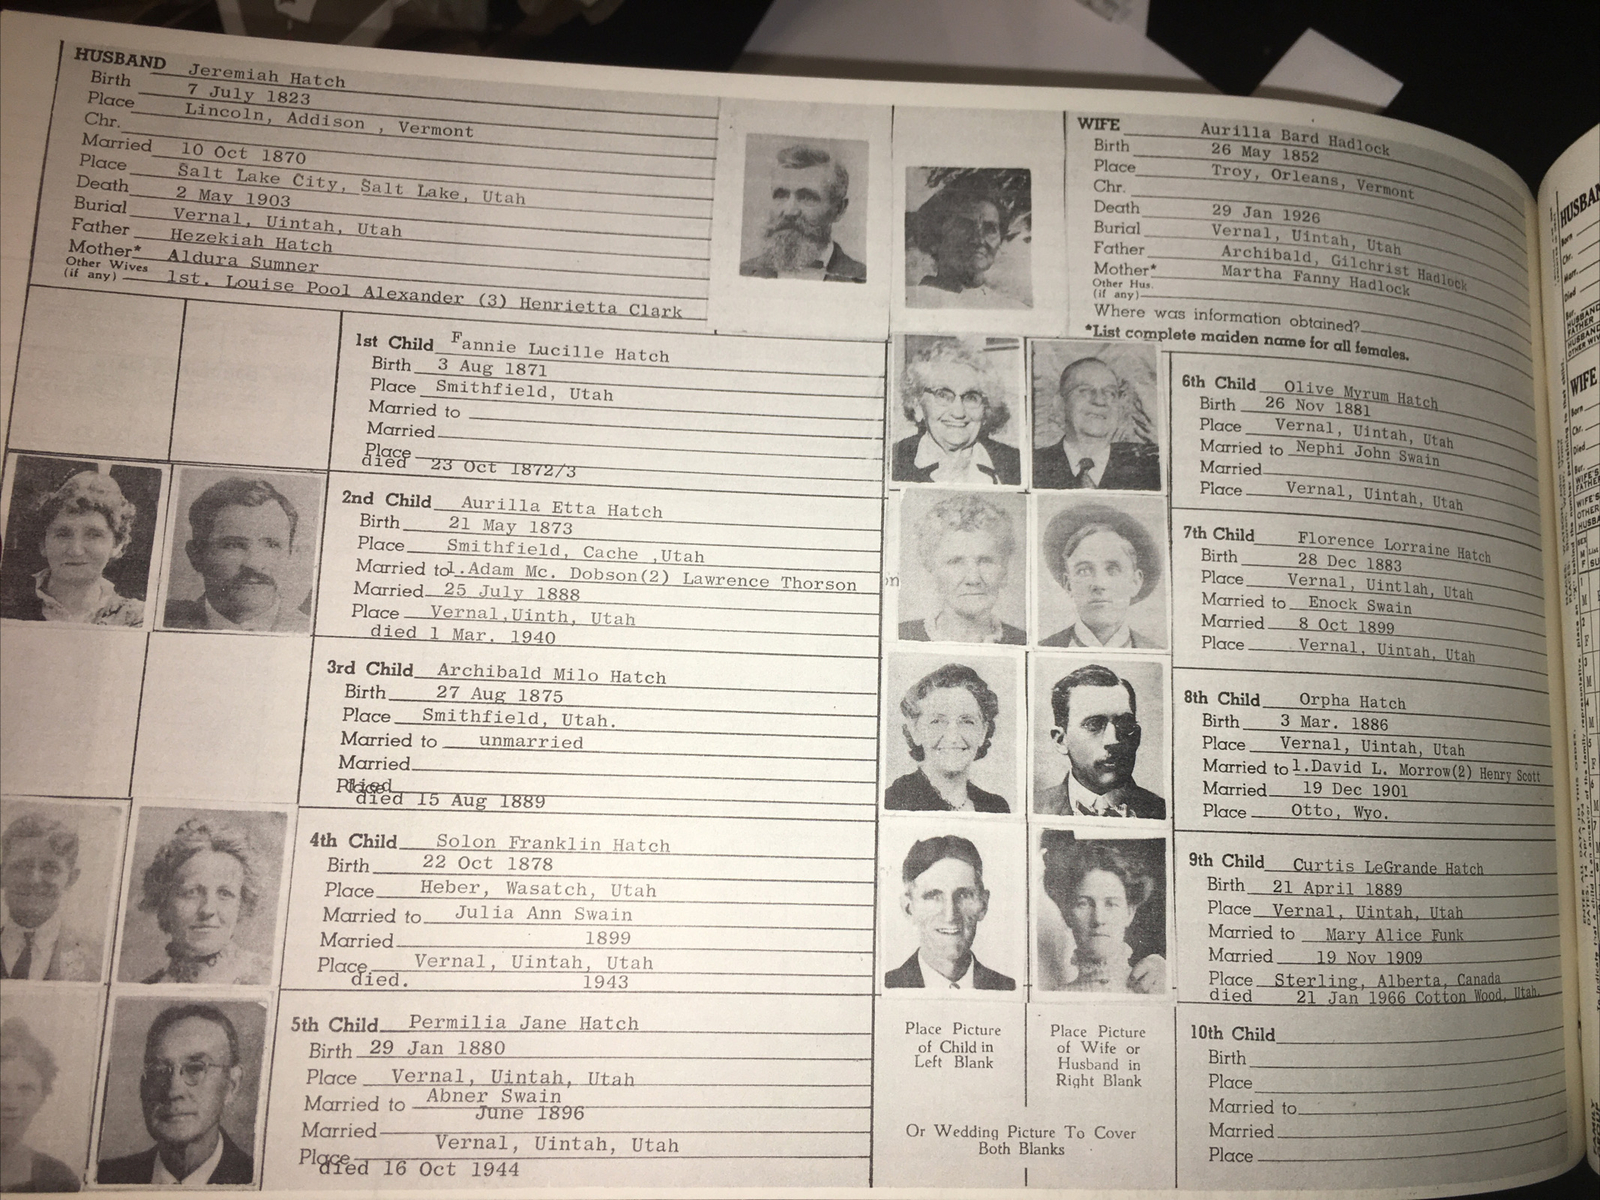 HUSBAND Jeremiah Hatch
Birth 7 July 1823
Place Lincoln, Addison , Vermont
Chr.
Married 10 Oct 1870
Place Salt Lake City, Salt Lake, Utah
Death 2 May 1903
Burial Vernal, Uintah, Utah
Father Hezekiah Hatch
Mother* Aldura Sumner
Other Wives
(if any) 1st. Louise Pool Alexander (3) Henrietta Clark
WIFE Aurilla Bard Hadlock
Birth 26 May 1852
Place Troy, Orleans, Vermont
Chr.
Death 29 Jan 1926
Burial Vernal, Uintah, Utah
Father Archibald, Gilchrist Hadlock
Mother* Martha Fanny Hadlock
Other Hus.
(if any)
Where was information obtained?
*List complete maiden name for all females.
1st Child Fannie Lucille Hatch
Birth 3 Aug 1871
Place Smithfield, Utah
Married to
Married
Place
died 23 Oct 1872/3
2nd Child Aurilla Etta Hatch
Birth 21 May 1873
Place Smithfield, Cache ,Utah
Married to 1.Adam Mc. Dobson(2) Lawrence Thorson
Married 25 July 1888
Place Vernal,Uinth, Utah
died 1 Mar. 1940
3rd Child Archibald Milo Hatch
Birth 27 Aug 1875
Place Smithfield, Utah.
Married to unmarried
Married
Place
died 15 Aug 1889
4th Child Solon Franklin Hatch
Birth 22 Oct 1878
Place Heber, Wasatch, Utah
Married to Julia Ann Swain
Married 1899
Place Vernal, Uintah, Utah
died. 1943
5th Child Permilia Jane Hatch
Birth 29 Jan 1880
Place Vernal, Uintah, Utah
Married to Abner Swain
June 1896
Married
Vernal, Uintah, Utah
Place
died 16 Oct 1944
6th Child Olive Myrum Hatch
Birth 26 Nov 1881
Place Vernal, Uintah, Utah
Married to Nephi John Swain
Married
Place Vernal, Uintah, Utah
7th Child Florence Lorraine Hatch
Birth 28 Dec 1883
Place Vernal, Uintlah, Utah
Married to Enock Swain
Married 8 Oct 1899
Place Vernal, Uintah, Utah
8th Child Orpha Hatch
Birth 3 Mar. 1886
Place Vernal, Uintah, Utah
Married to 1.David L. Morrow(2) Henry Scott
Married 19 Dec 1901
Place Otto, Wyo.
9th Child Curtis LeGrande Hatch
Birth 21 April 1889
Place Vernal, Uintah, Utah
Married to Mary Alice Funk
Married 19 Nov 1909
Place Sterling, Alberta, Canada
died 21 Jan 1966 Cotton Wood, Utah.
10th Child
Birth
Place
Married to
Married
Place
Place Picture
of Child in
Left Blank
Place Picture
of Wife or
Husband in
Right Blank
Or Wedding Picture To Cover
Both Blanks
WIFE